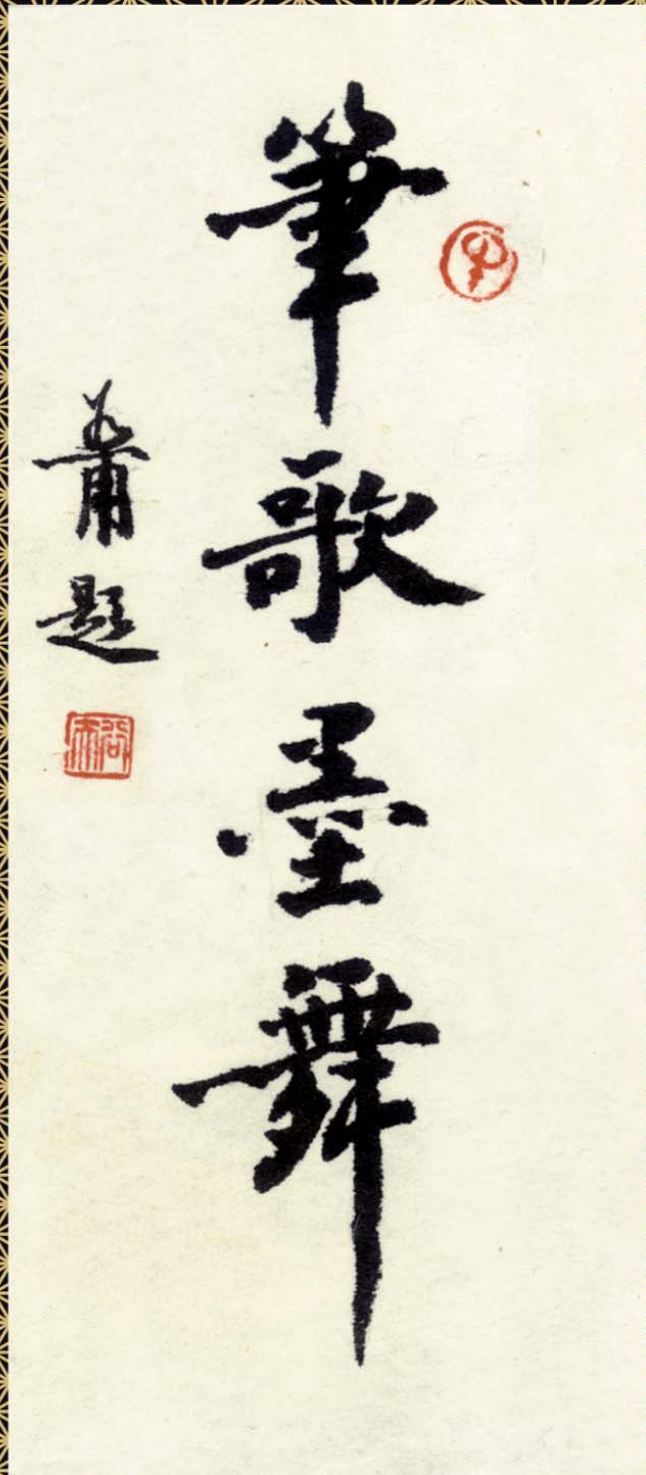 筆歌墨舞
題